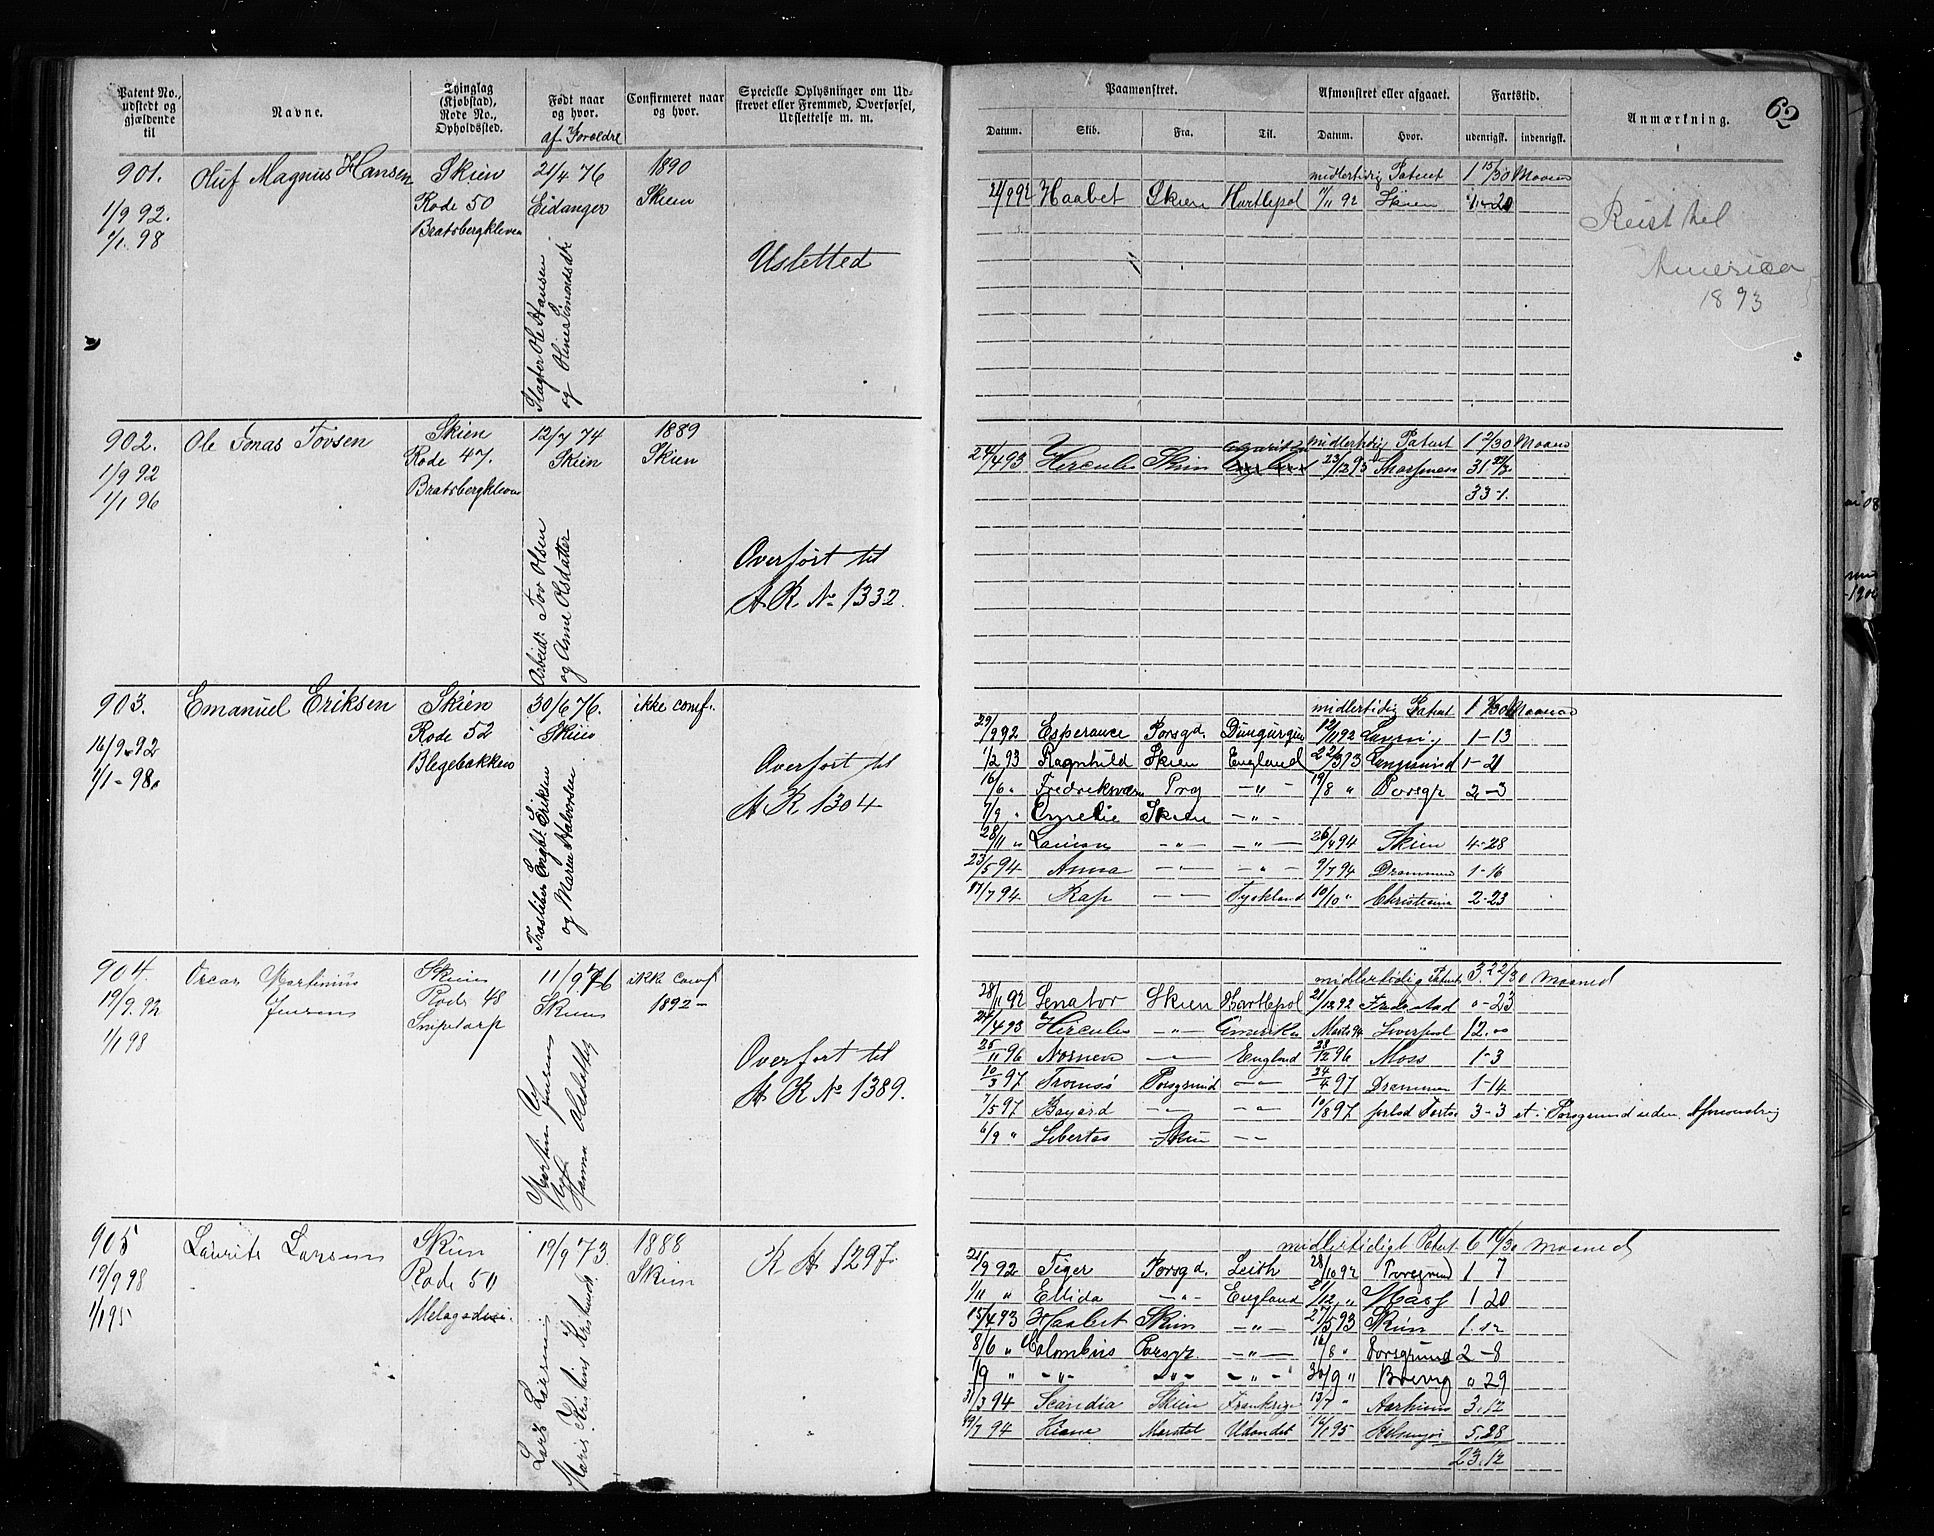 62
Patent No., udstedt og gjældende til
Navne.
Thinglag (Kjøbstad), Rode No., Opholdssted.
Født naar og hvor.
af Foreldre
Confirmeret naar og hvor.
Specielle Oplysninger om Udskrevet eller Fremmed, Overførsel, Udslettelse m. m.
Paamønstret.
Afmønstret eller afgaaet.
Fartstid.
Anmærkning.
Datum.
Skib.
Fra.
Til.
Datum.
Hvor.
udenrigsk.
indenrigsk.
901.
1/9 92.
1/1 98
Oluf Magnus Hansen
Skien
Rode 50
Bratsbergkleven
21/4 76
Eidanger
Slagter Ole Hansen
og Oline Simonsdtr
1890
Skien
Usletted
midlertidig Patent 1 15/30 Maaned
21/9 92 Haabet Skien Hartlepol 11/11 92 Skien 1-20
Reist til
America
1893
902.
1/9 92
1/1 96
Ole Jonas Tovsen
Skien
Rode 47.
Bratsbergkleven
12/7 74
Skien
Arbeidr Tov Olsen
og Anne Olsdatter
1889
Skien
Overført til
A. R. No 1332.
midlertidig Patent 1 2/30 Maaned
24/4 93 Hercules Skien 23/12 93
33-1.
903.
16/9 92
1/1-98.
Emanuel Eriksen
Skien
Rode 52
Blegebakken
30/6 76.
Skien
Engbl. Eriksen
og Maren Halvorsen
ikke conf.
Overført til
A R 1304
midlertidig Patent 1 Maaned
29/9 92 Esperance Porsgd. 12/11 92 1-13
1/2 93 Ragnhild Skien England 22/3 93 1-21
16/6 " Fredriksværn Prg -"- 19/8 " Porsgr 2-3
7/9 " Emelie Skien -"-
28/11 " -"- -"- 26/4 94 Skien 4-28
23/5 94 Anna -"- -"- 9/7 94 Drammen 1-16
17/7 94 Rap -"- Tyskland 10/10 " Christiania 2-23
904.
19/9. 92
1/1 98
Oscar Martinius
Jensen
Skien
Rode 48
Snipetorp
11/9 76
Skien
Martin Jensen
Hanna
ikke conf
1892-
Overført til
A R No 1389.
midlertidig Patent 3 22/30 Maaned
28/11 92 Senator Skien Hartlepol 21/12 92 Fredrestad "-23
24/4 93 Hercules -"- Amerika Marts 94 Liverpool 12."
25/11 96 Nornen -"- England 28/12 96 Moss 1-3
10/3 97 Tromsø Porsgrund -"- 24/4 97 Drammen 1-14
7/5 97 Bayard -"- -"- 10/8 97 forlod Fartøiet i Porsgrund uden Afmønstring 3-3
6/9 " Libertas Skien -"-
905
19/9 98
1/1 95
Laurits Larsen
Skien
Rode 50
19/9 73.
Lars Larsen
Maria Kristine Kristiansdtr
1888
Skien
R A 1297.
midlertidigt Patent 6 10/30 Maaned
21/9 92 Tiger Porsgd. Leith 28/10 92 Porsgrund 1 7
1/11 " Ellida -"- England 21/12 " Mass 1 20
15/4 93 Haabet Skien -"- 27/5 93 Skien 1.12
8/6 " Colombus Porsgr. -"- 16/8 " Porsgrund 2-8
1/9 " -"- -"- -"- 30/9 " Brevig " 29
31/3 94 Scandia Skien Frankrige 13/7 " Aarhuus 3.12
19/7 94 Marstal Udlandet 16/1 95 Helsingør 5.28
23.12